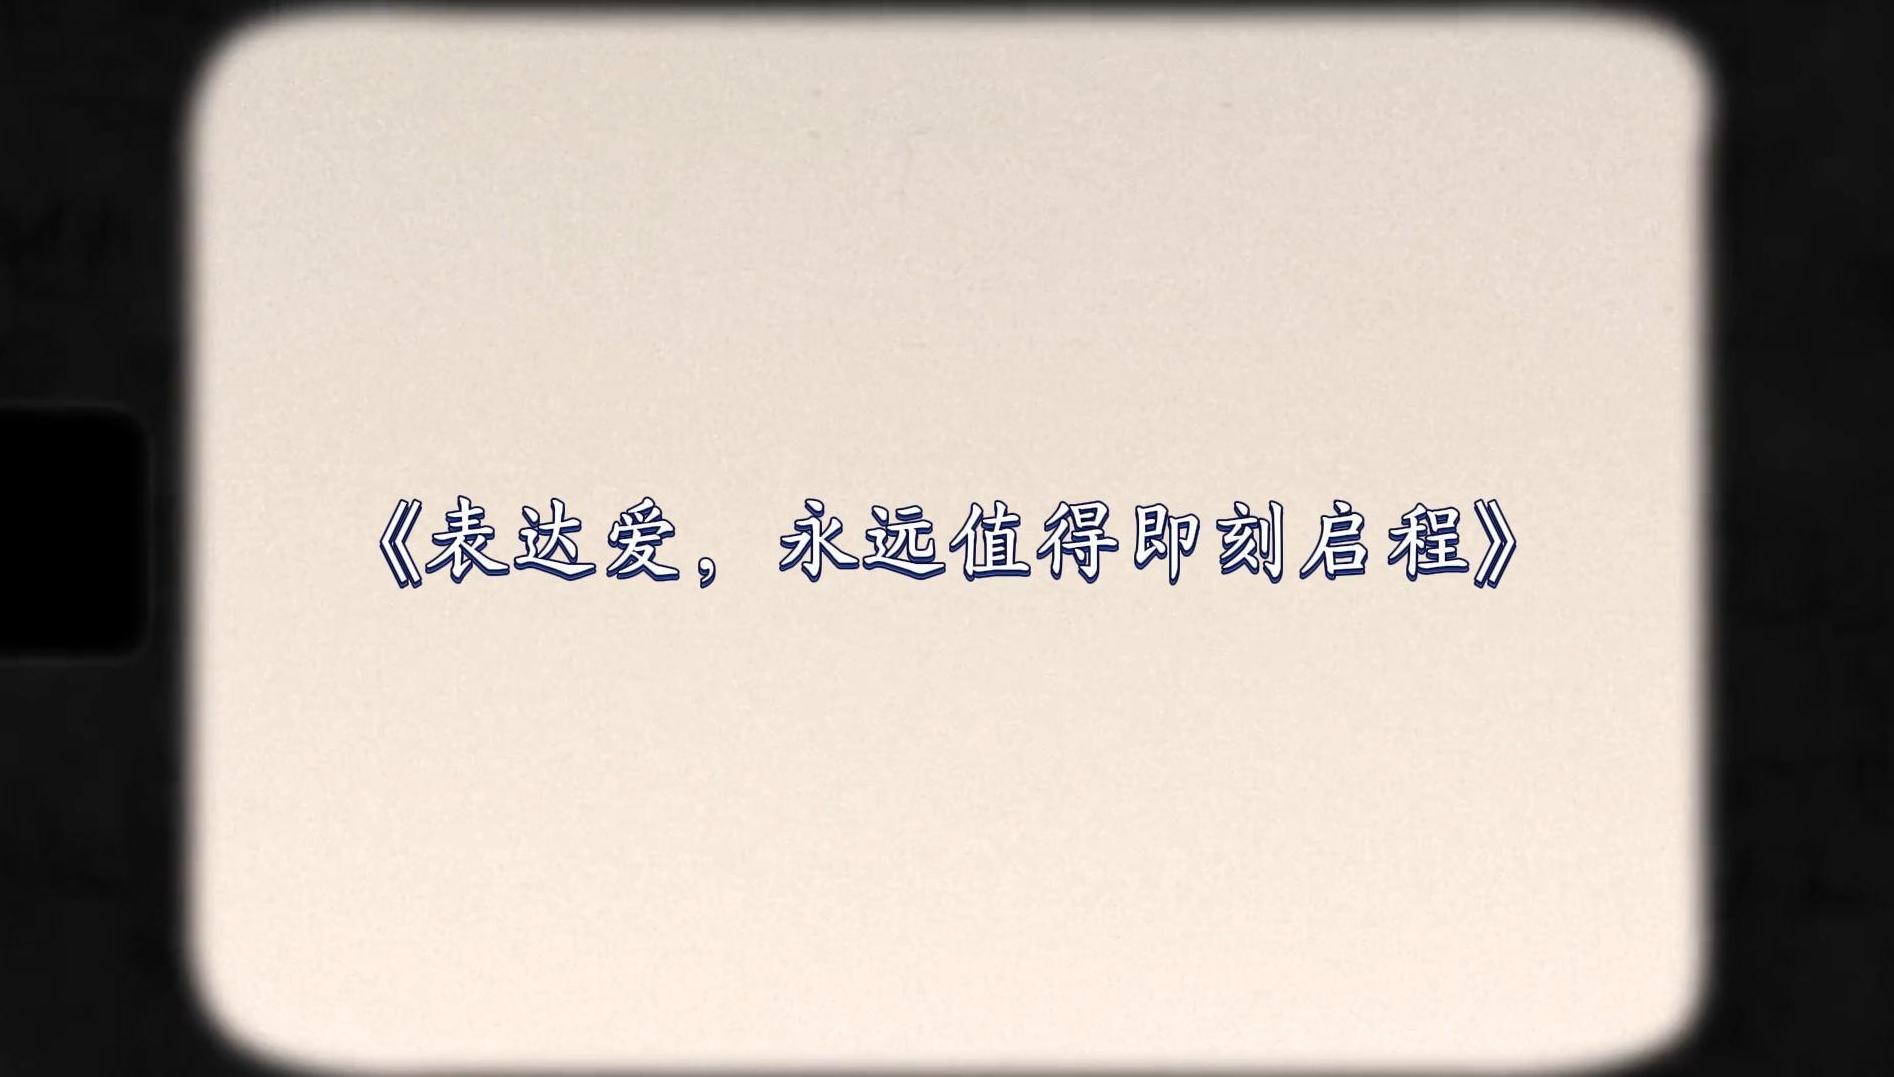 《表达爱，永远值得即刻启程》